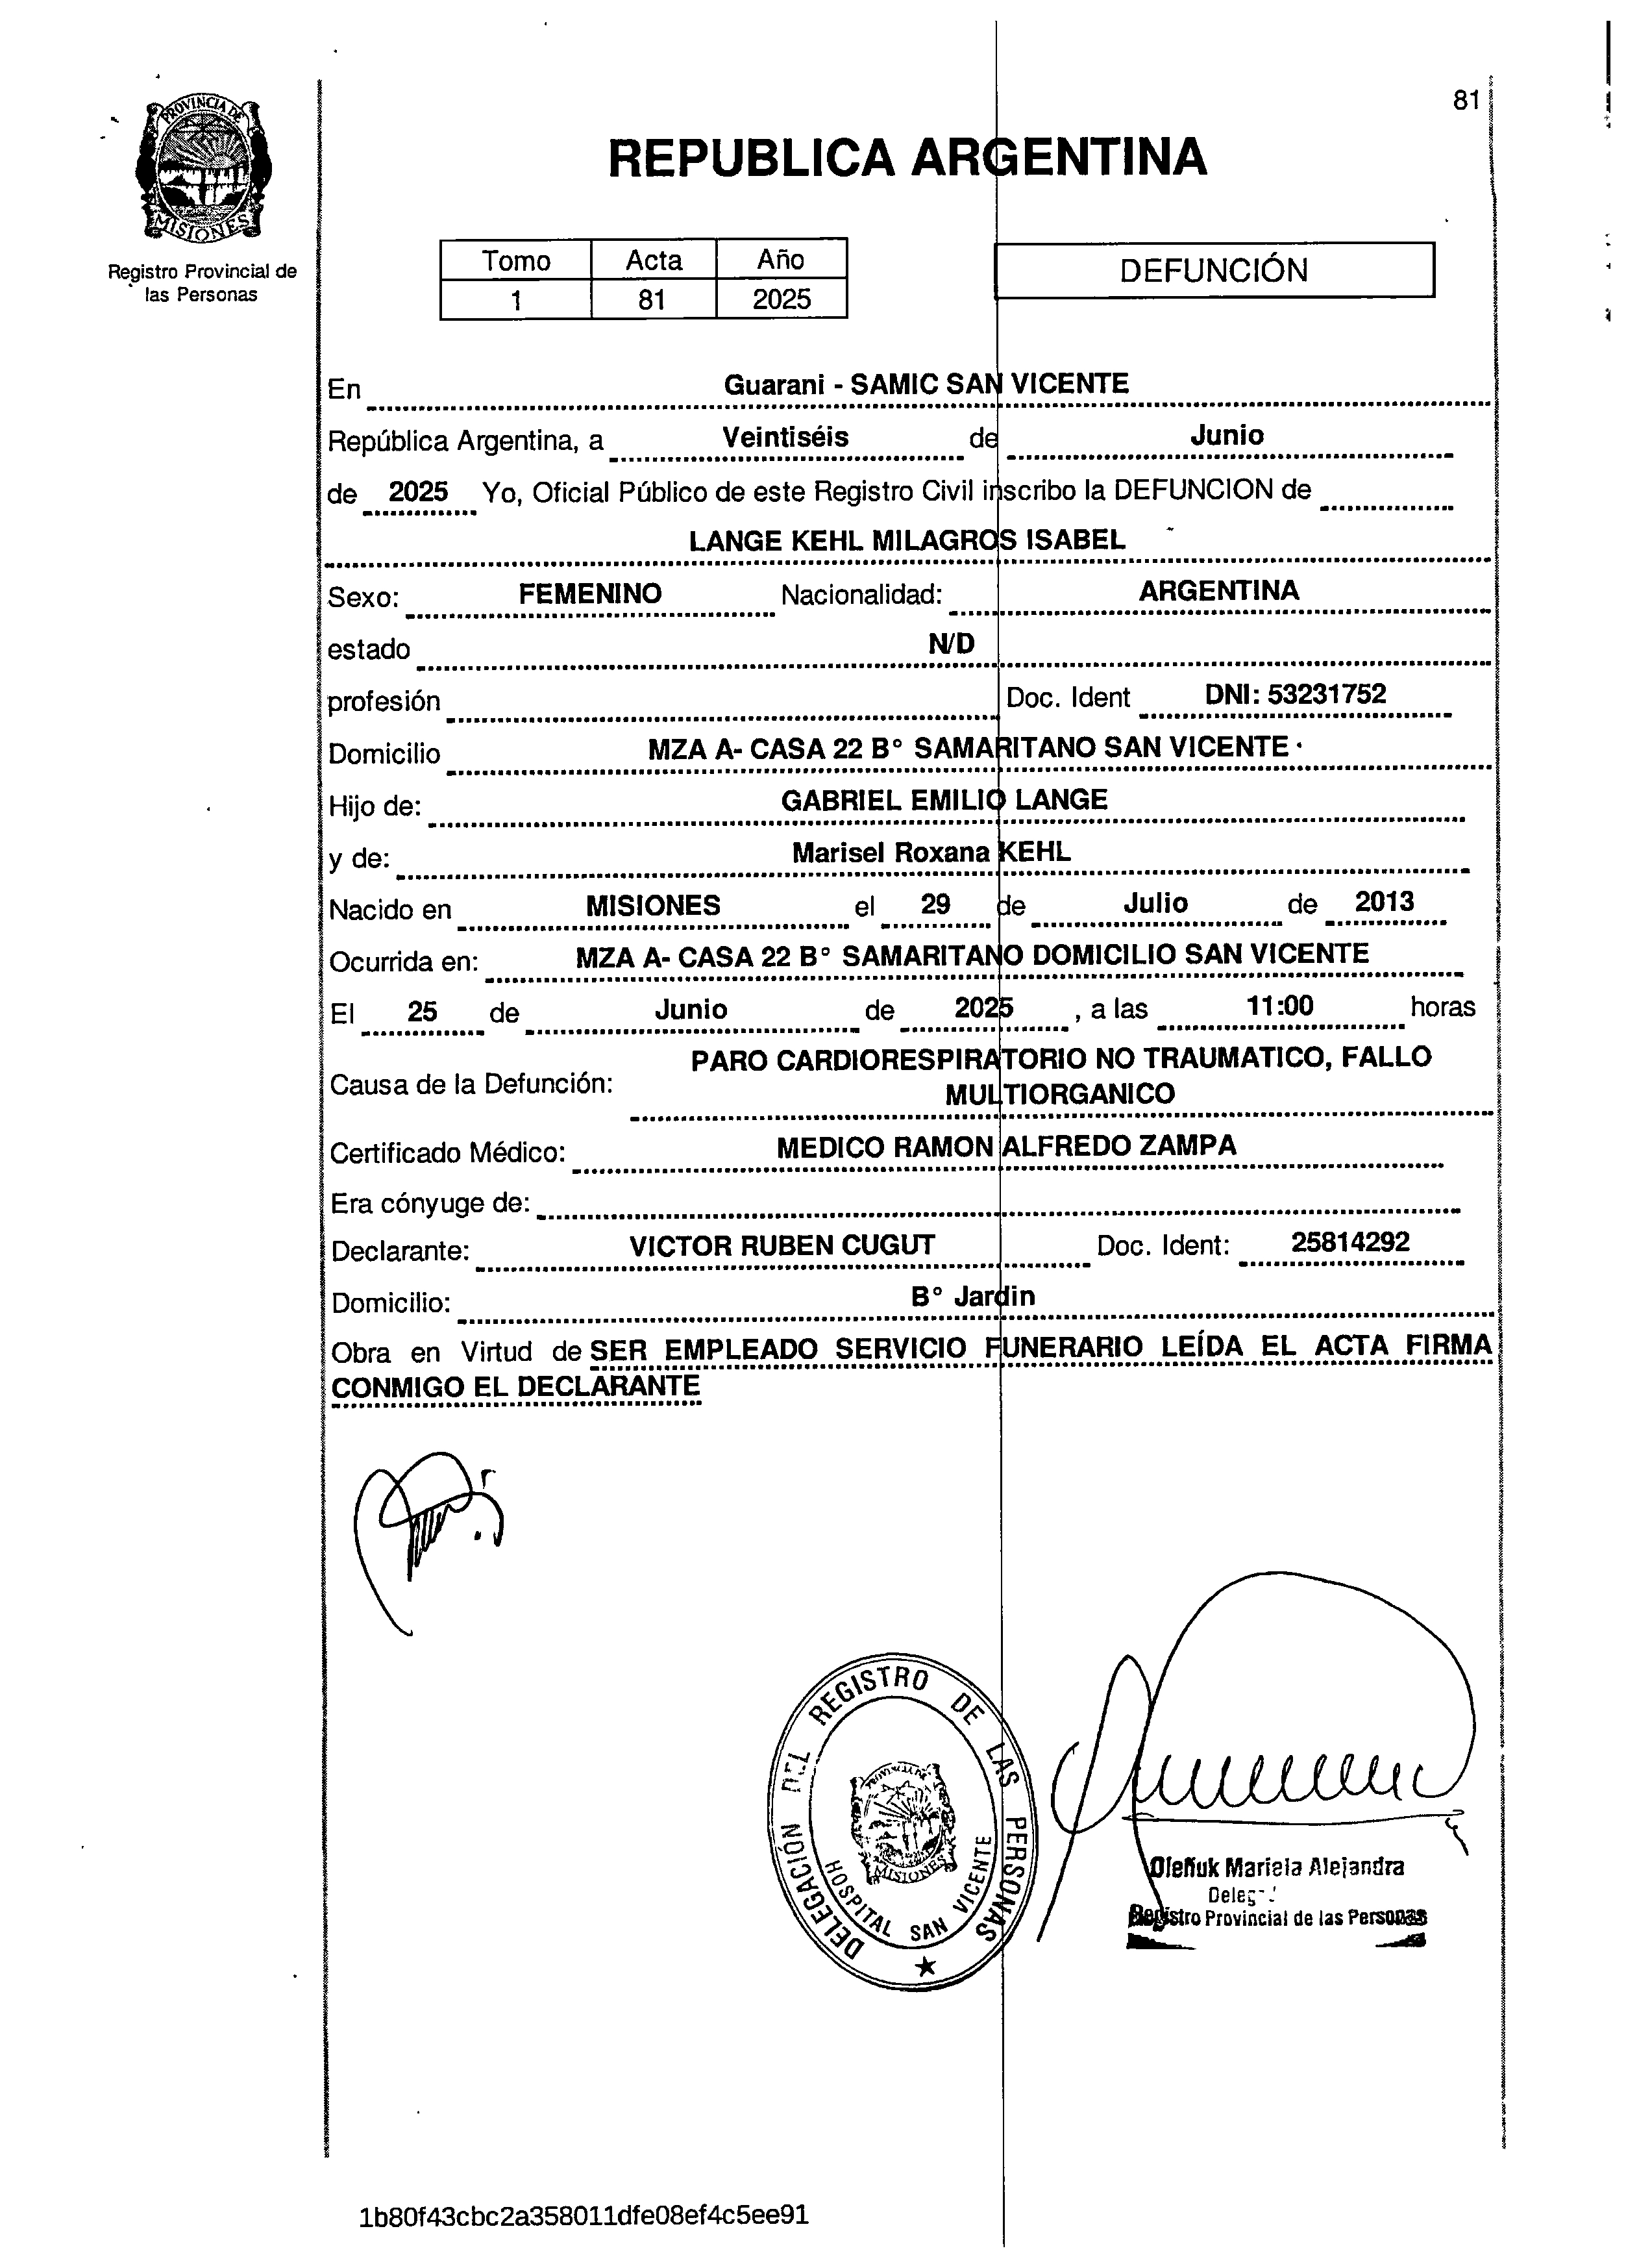 81
PROVINCIA DE
MISIONES
Registro Provincial de
las Personas
REPUBLICA ARGENTINA
Tomo Acta Año
1 81 2025
DEFUNCIÓN
En Guarani - SAMIC SAN VICENTE
República Argentina, a Veintiséis de Junio
de 2025 Yo, Oficial Público de este Registro Civil inscribo la DEFUNCION de
LANGE KEHL MILAGROS ISABEL
Sexo: FEMENINO Nacionalidad: ARGENTINA
estado N/D
profesión Doc. Ident DNI: 53231752
Domicilio MZA A- CASA 22 B° SAMARITANO SAN VICENTE
Hijo de: GABRIEL EMILIO LANGE
y de: Marisel Roxana KEHL
Nacido en MISIONES el 29 de Julio de 2013
Ocurrida en: MZA A- CASA 22 B° SAMARITANO DOMICILIO SAN VICENTE
El 25 de Junio de 2025 , a las 11:00 horas
Causa de la Defunción: PARO CARDIORESPIRATORIO NO TRAUMATICO, FALLO
MULTIORGANICO
Certificado Médico: MEDICO RAMON ALFREDO ZAMPA
Era cónyuge de:
Declarante: VICTOR RUBEN CUGUT Doc. Ident: 25814292
Domicilio: B° Jardin
Obra en Virtud de SER EMPLEADO SERVICIO FUNERARIO LEÍDA EL ACTA FIRMA
CONMIGO EL DECLARANTE
DELEGACIÓN DEL REGISTRO DE LAS PERSONAS
PROVINCIA DE
MISIONES
HOSPITAL SAN VICENTE
Mariela Alejandra
Registro Provincial de las Personas
1b80f43cbc2a358011dfe08ef4c5ee91